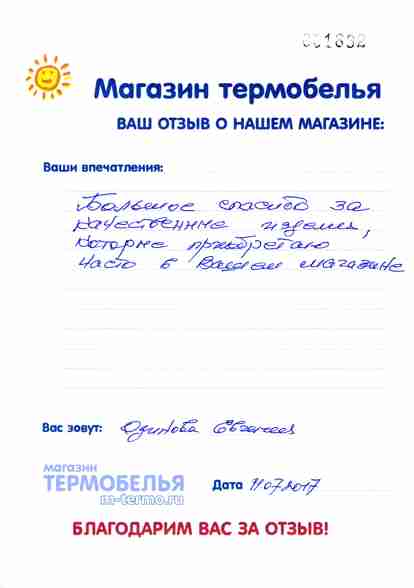 001632
Магазин термобелья
ВАШ ОТЗЫВ О НАШЕМ МАГАЗИНЕ:
Ваши впечатления:
Большое спасибо за
качественные изделия,
которые приобретаю
часто в вашем магазине
Вас зовут: Одинова Евгения
магазин
ТЕРМОБЕЛЬЯ
m-termo.ru
Дата 11.07.2017
БЛАГОДАРИМ ВАС ЗА ОТЗЫВ!